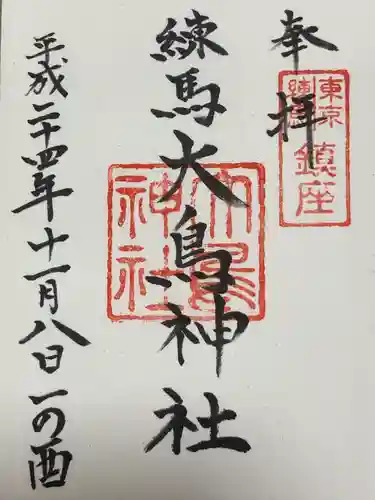 奉拝
東京
練馬
鎮座
練馬大鳥神社
大鳥
神社
平成二十四年十一月八日一の酉